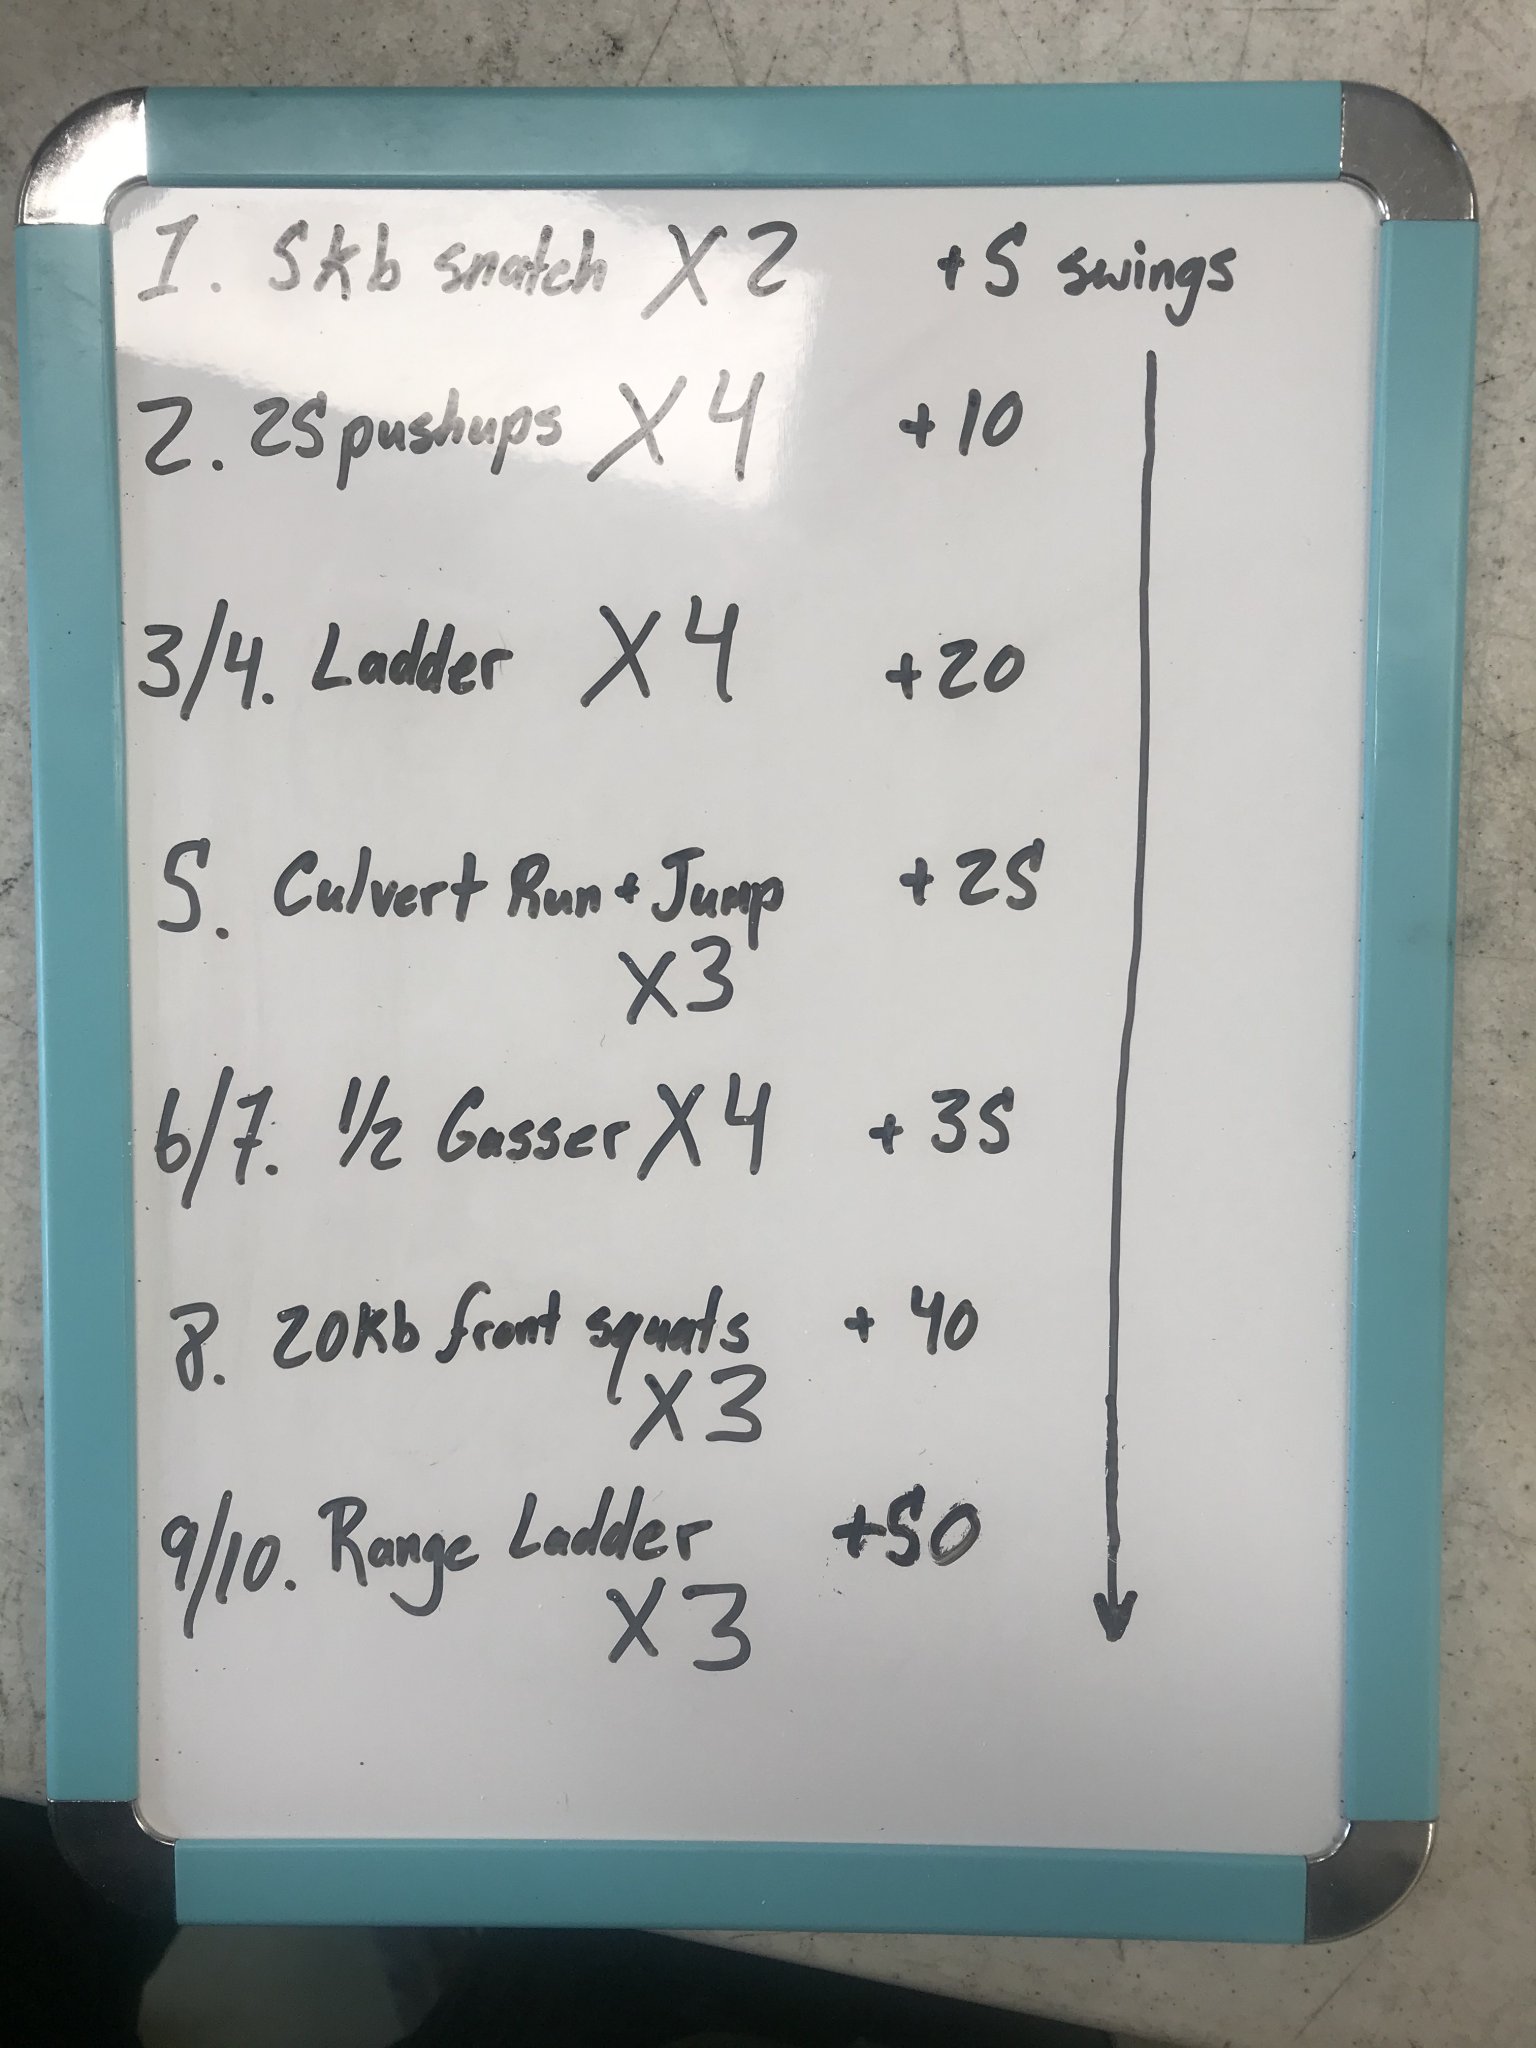 1. 5kb snatch X2 +5 swings
2. 25pushups X4 +10
3/4. Ladder X4 +20
5. Culvert Run + Jump +25
X3
6/7. 1/2 Gasser X4 +35
8. 20kb front squats +40
X3
9/10. Range Ladder +50
X3